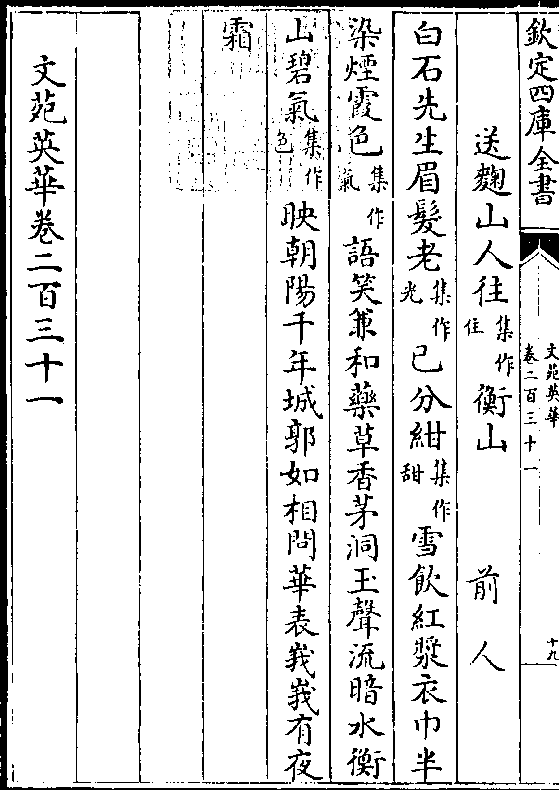 欽定四庫全書
文苑英華
卷二百三十一
十九
送麴山人往集作住衡山 前人
白石先生眉髮老集作光已分紺集作甜雪飲紅漿衣巾半
染煙霞色集作氣語笑兼和藥草香茅洞玉聲流暗水衡
山碧氣集作色映朝陽千年城郭如相問華表峩峩有夜
霜
文苑英華卷二百三十一